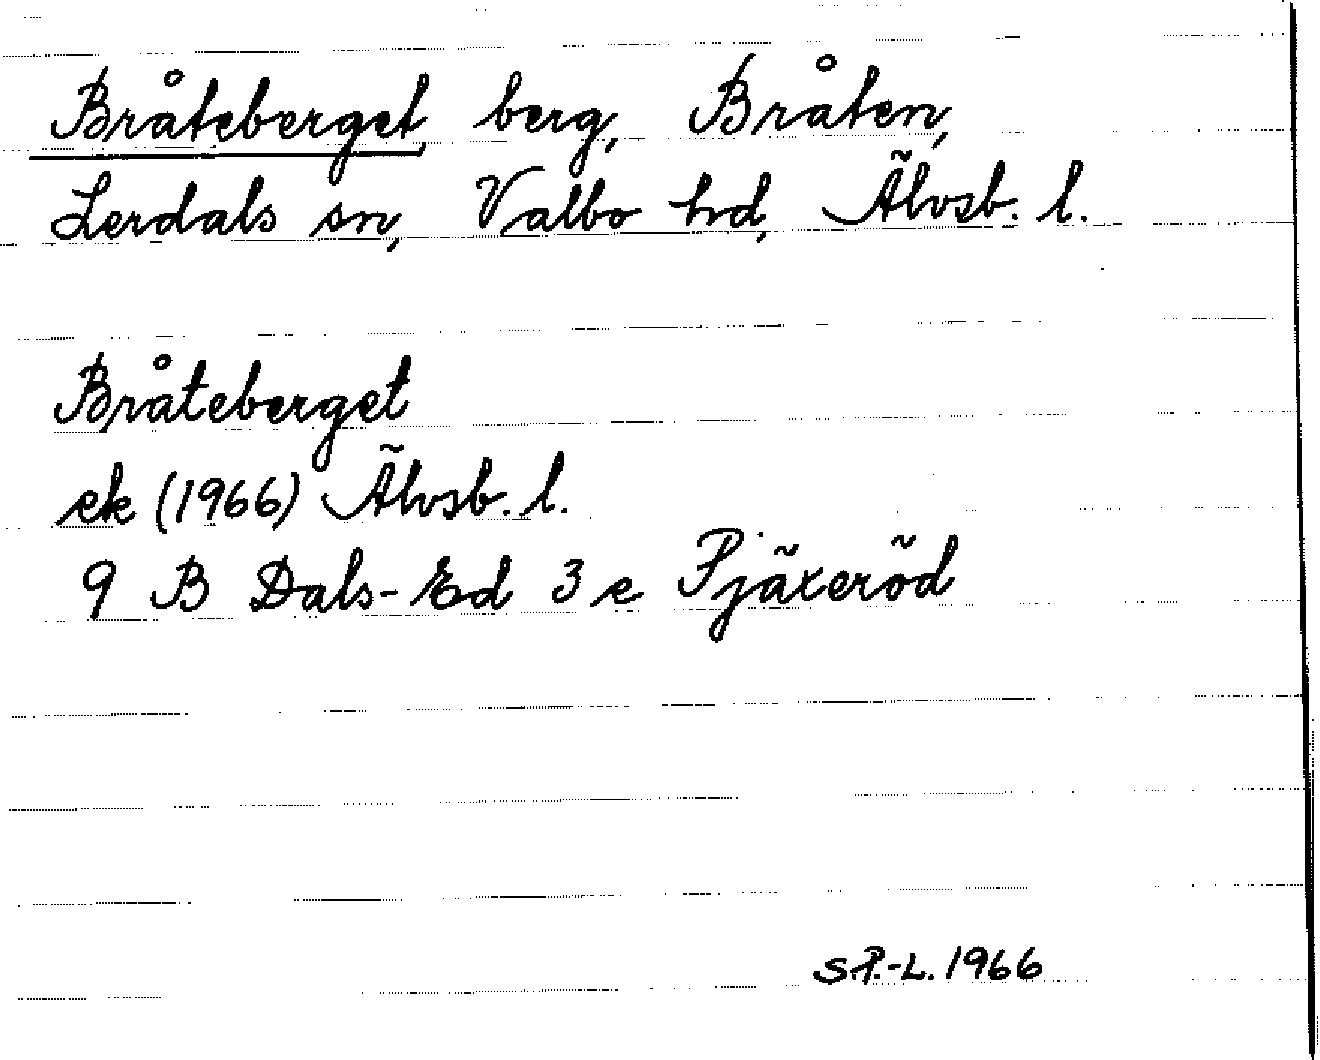 Bråteberget, berg, Bråten,
Lerdals sn, Valbo hd, Älvsb. l.
Bråteberget
ek (1966) Älvsb. l.
9 B Dals-Ed 3 e Pjäxeröd
SP.-L. 1966